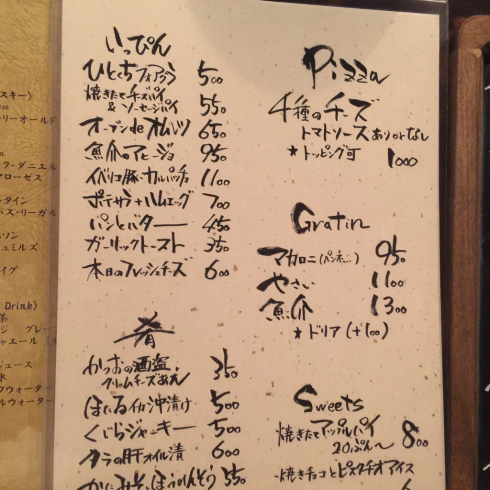 いっぴん
ひとくちフォアグラ 500
焼きたてチーズパイ
&ソーセージパイ 550
オーブンdeオムレツ 650
魚介のアヒージョ 950
イベリコ豚・カルパッチョ 1100
ポテサラ+ハムエッグ 700
パンとバター 450
ガーリックトースト 350
本日のフレッシュチーズ 600
肴
かつおの酒盗・
クリームチーズあえ 350
ほたるイカ沖漬け 500
くじらジャーキー 500
タラの肝オイル漬 600
かにみそ・ほうれんそう 550
Pizza
4種のチーズ
トマトソースありorなし
★トッピング可 1000
Gratin
マカロニ(ペンネ) 950
やさい 1100
魚介 1300
★ドリア(+100)
Sweets
焼きたてアップルパイ 800
20ぷん〜
・焼きチョコとピスタチオアイス
スキー)
リーオールド
ク・ダニエル
ローゼス
タイン
バス・リーガル
ソン
ュミルズ
イヴ
Drink)
茶
ジ グレー
ャエール
ュース
水
ウォーター
ルウォーター